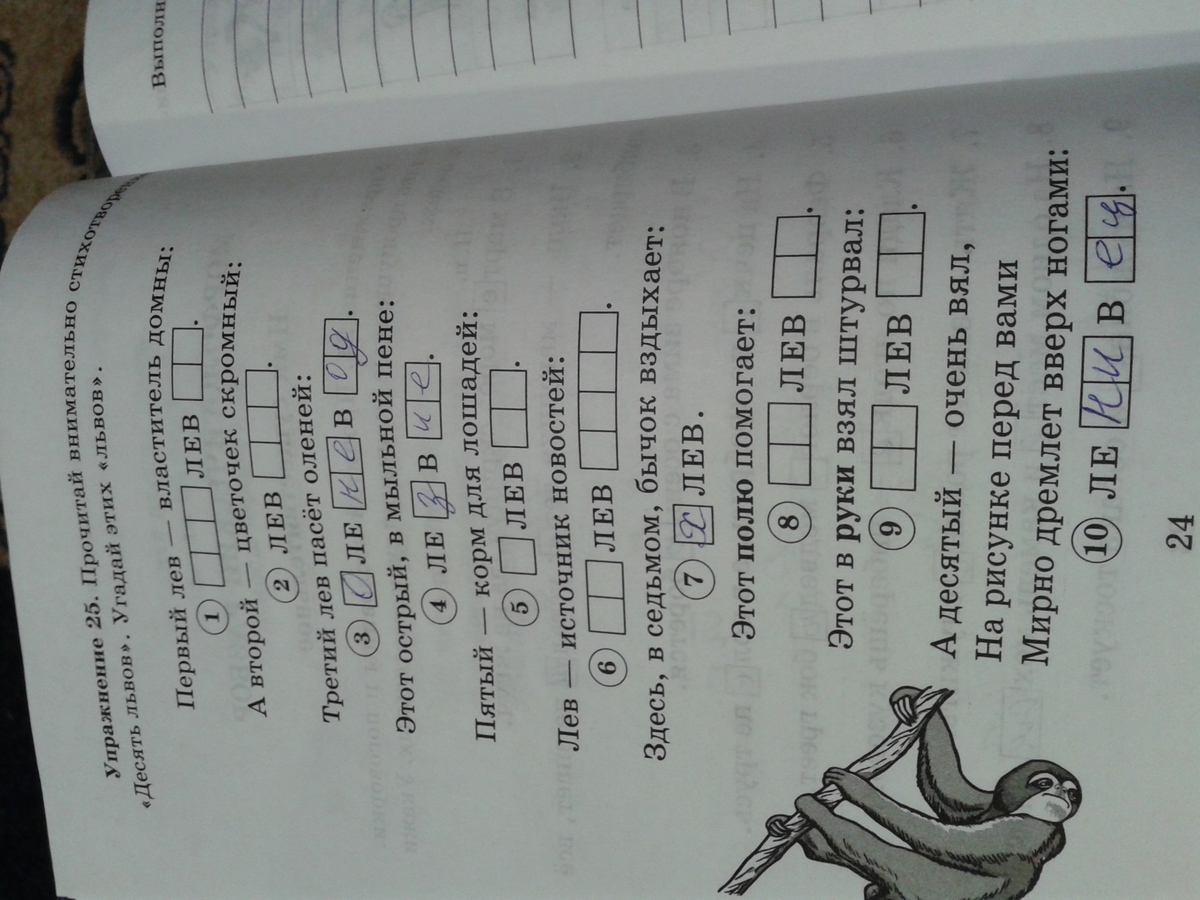 Выполн
Упражнение 25. Прочитай внимательно стихотворен
«Десять львов». Угадай этих «львов».
Первый лев — властитель домны:
1 ЛЕВ .
А второй — цветочек скромный:
2 ЛЕВ .
Третий лев пасёт оленей:
3 с ЛЕ не В од .
Этот острый, в мыльной пене:
4 ЛЕ з В ие .
Пятый — корм для лошадей:
5 ЛЕВ .
Лев — источник новостей:
6 ЛЕВ .
Здесь, в седьмом, бычок вздыхает:
7 х ЛЕВ.
Этот полю помогает:
8 ЛЕВ .
Этот в руки взял штурвал:
9 ЛЕВ .
А десятый — очень вял,
На рисунке перед вами
Мирно дремлет вверх ногами:
10 ЛЕ ни В ец .
24